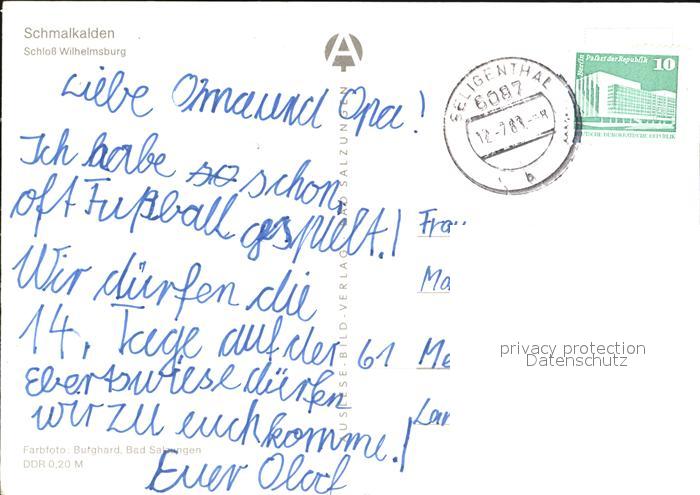 Schmalkalden
Schloß Wilhelmsburg
A
SELIGENTHAL
6087
12.-7.83.-
b
Berlin Palast der Republik 10
DEUTSCHE DEMOKRATISCHE REPUBLIK
Liebe Oma und Opa!
Ich habe so schon
oft Fußball gespielt!
Wir dürfen die
14. Tage auf der
Ebertswiese dürfen
wir zu euch komme!
Euer Olaf
AUSLESE-BILD-VERLAG BAD SALZUNGEN
Fra
Ma
61 Me
Lan
privacy protection
Datenschutz
Farbfoto: Burghard, Bad Salzungen
DDR 0,20 M